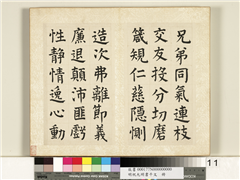 兄弟同氣連枝
交友投分切磨
箴規仁慈隱惻
造次弗離節義
廉退顛沛匪虧
性靜情逸心動
11